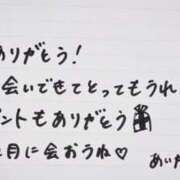 ありがとう!
会いできてとってもうれ
ントもありがとう
月に会おうね♡
あいか